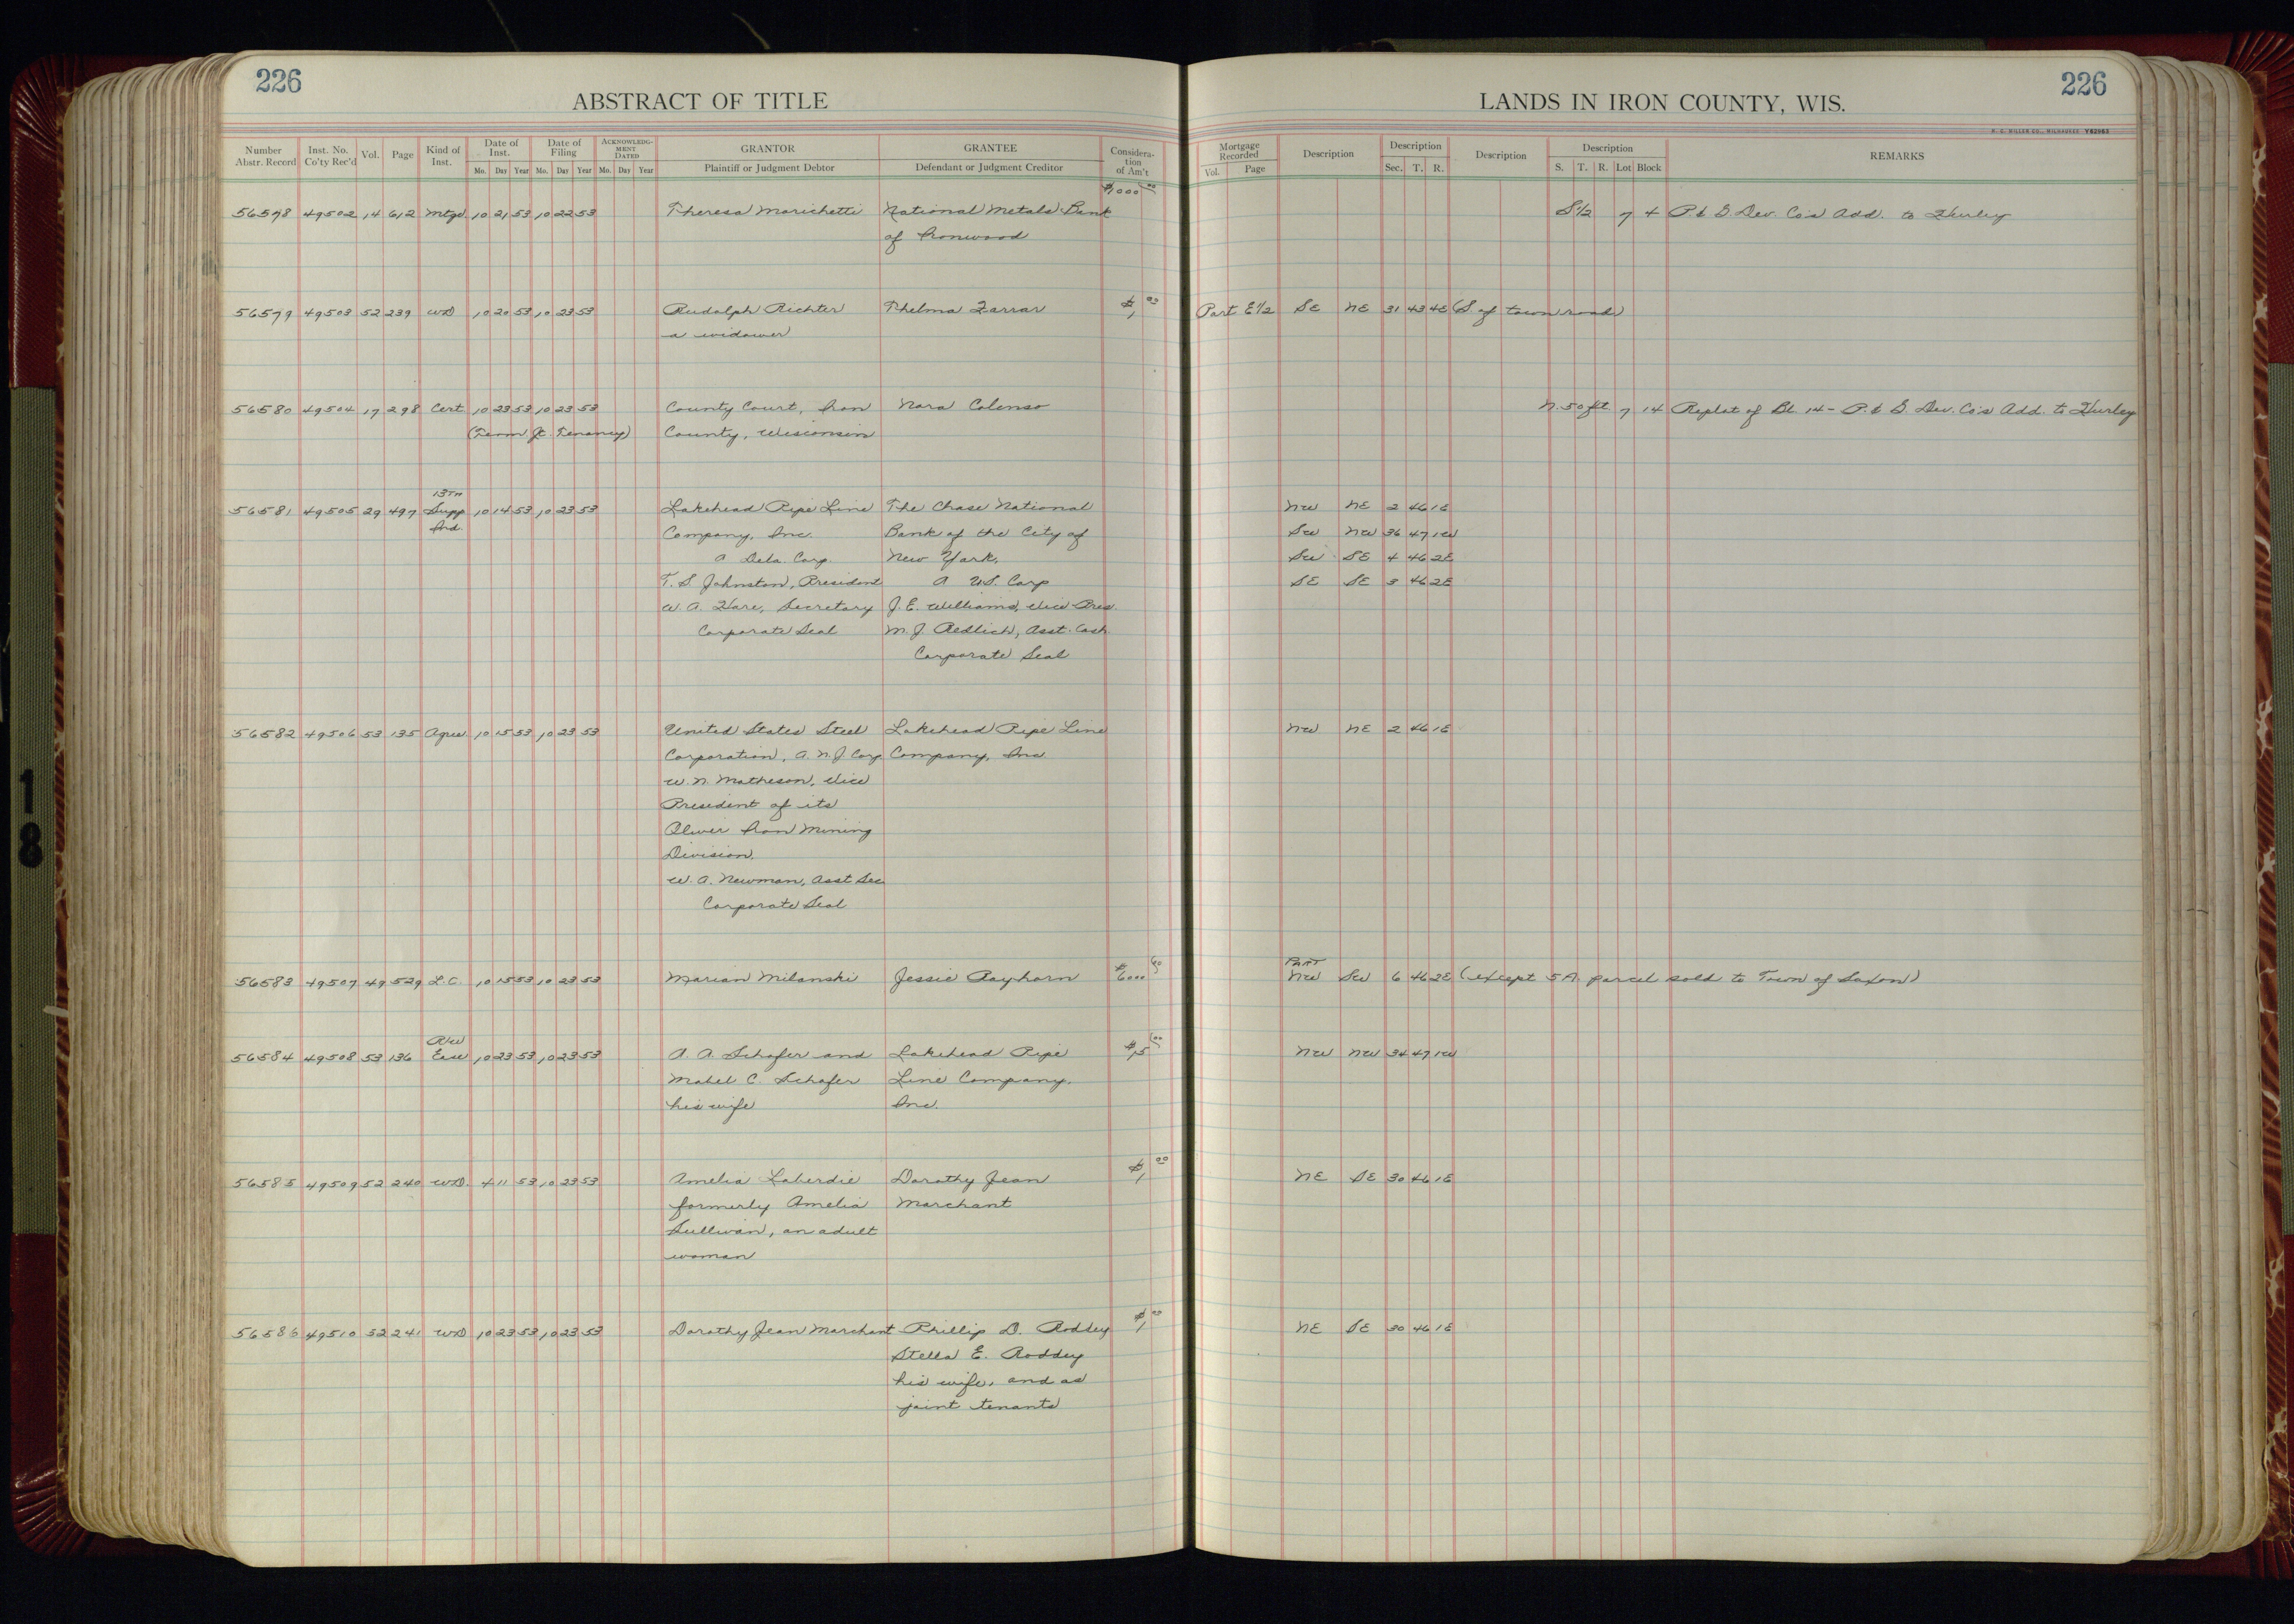 226
ABSTRACT OF TITLE
LANDS IN IRON COUNTY, WIS.
226
H. C. MILLER CO., MILWAUKEE V62963
Number Abstr. Record | Inst. No. Co'ty Rec'd | Vol. | Page | Kind of Inst. | Date of Inst. Mo. Day Year | Date of Filing Mo. Day Year | ACKNOWLEDGMENT DATED Mo. Day Year | GRANTOR Plaintiff or Judgment Debtor | GRANTEE Defendant or Judgment Creditor | Consideration of Am't | Mortgage Recorded Vol. Page | Description | Description Sec. T. R. | Description | Description S. T. R. Lot Block | REMARKS
56578 49502 14 612 Mtge. 10 21 53 10 22 53 Theresa Marichetti National Metals Bank S1/2 7 4 P. & G. Dev. Co's Add. to Hurley
of Ironwood
56579 49503 52 239 WD 10 20 53 10 23 53 Rudolph Richter Thelma Zarrar $1 00 Part E1/2 SE NE 31 43 4E (S. of town road)
a widower
56580 49504 17 298 Cert. 10 23 53 10 23 53 County Court, Iron Nora Colenso N. 50 ft. 7 14 Replat of Bl. 14 - P. & G. Dev. Co's Add. to Hurley
(Term Jt. Tenancy) County, Wisconsin
13TH
56581 49505 29 497 Supp 10 14 53 10 23 53 Lakehead Pipe Line The Chase National NW NE 2 46 1E
Ind. Company, Inc. Bank of the City of SW NW 36 47 1W
A Dela. Corp. New York, SW SE 4 46 2E
T. S. Johnston, President A U.S. Corp SE SE 3 46 2E
W. A. Hare, Secretary J. E. Williams, Vice Pres.
Corporate Seal M. J. Redlich, Asst. Cash.
Corporate Seal
56582 49506 53 135 Agree 10 15 53 10 23 53 United States Steel Lakehead Pipe Line NW NE 2 46 1E
Corporation, A N.J. Corp Company, Inc
W. N. Matheson, Vice
President of its
Oliver Iron Mining
Division.
W. A. Newman, Asst Sec
Corporate Seal
PART
56583 49507 49 529 L.C. 10 15 53 10 23 53 Marian Milanski Jessie Rayhorn $6000 00 NW SW 6 46 2E (except 5 A. parcel sold to Town of Saxon)
R/W
56584 49508 53 136 Ease 10 23 53 10 23 53 A. A. Schafer and Lakehead Pipe $15 00 NW NW 34 47 1W
Mabel C. Schafer Line Company,
his wife Inc.
56585 49509 52 240 WD. 4 11 53 10 23 53 Amelia Laberdie Dorothy Jean $1 00 NE SE 30 46 1E
formerly Amelia Marchant
Sullivan, an adult
woman
56586 49510 52 241 WD 10 23 53 10 23 53 Dorothy Jean Marchant Phillip D. Roddey $1 00 NE SE 30 46 1E
Stella E. Roddey
his wife, and as
joint tenants
18